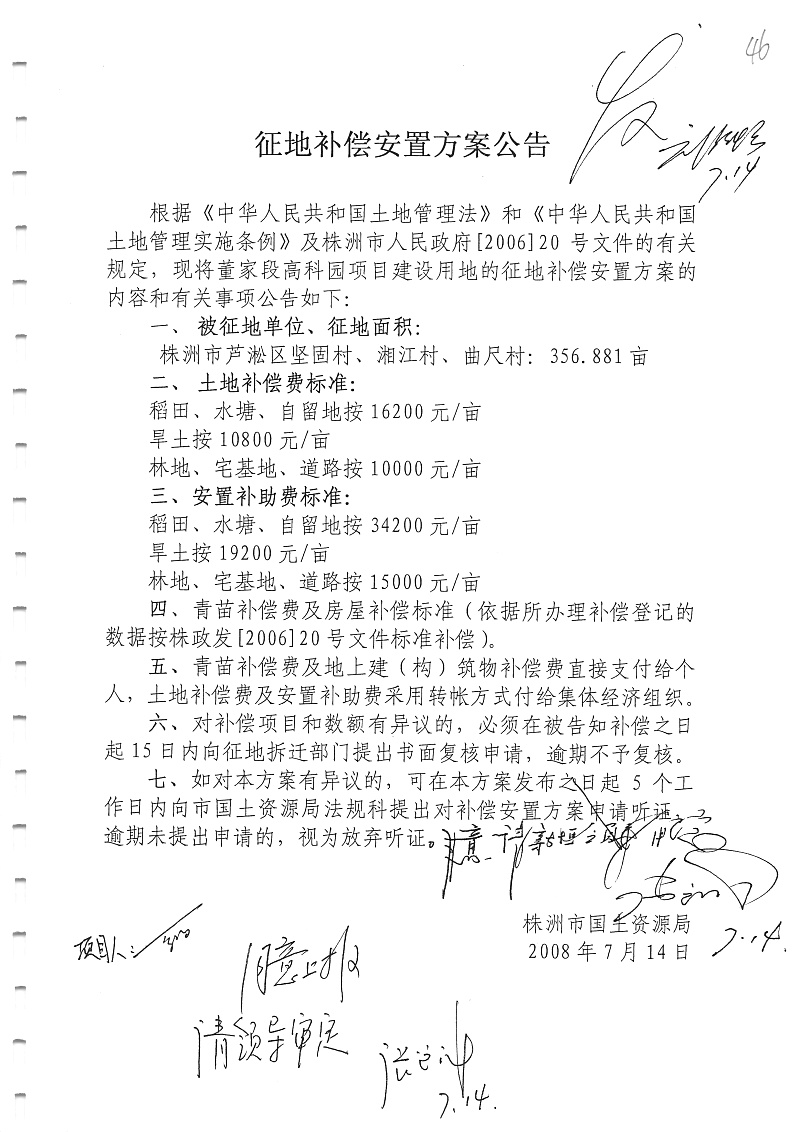 46
发
7.14
征地补偿安置方案公告
根据《中华人民共和国土地管理法》和《中华人民共和国
土地管理实施条例》及株洲市人民政府[2006]20 号文件的有关
规定，现将董家段高科园项目建设用地的征地补偿安置方案的
内容和有关事项公告如下：
一、 被征地单位、征地面积：
株洲市芦淞区坚固村、湘江村、曲尺村：356.881 亩
二、 土地补偿费标准：
稻田、水塘、自留地按 16200 元/亩
旱土按 10800 元/亩
林地、宅基地、道路按 10000 元/亩
三、安置补助费标准：
稻田、水塘、自留地按 34200 元/亩
旱土按 19200 元/亩
林地、宅基地、道路按 15000 元/亩
四、青苗补偿费及房屋补偿标准（依据所办理补偿登记的
数据按株政发[2006]20 号文件标准补偿）。
五、青苗补偿费及地上建（构）筑物补偿费直接支付给个
人，土地补偿费及安置补助费采用转帐方式付给集体经济组织。
六、对补偿项目和数额有异议的，必须在被告知补偿之日
起 15 日内向征地拆迁部门提出书面复核申请，逾期不予复核。
七、如对本方案有异议的，可在本方案发布之日起 5 个工
作日内向市国土资源局法规科提出对补偿安置方案申请听证，
逾期未提出申请的，视为放弃听证。
株洲市国土资源局
2008 年 7 月 14 日
7.14.
项目人：
同意上报
请领导审定
7.14.